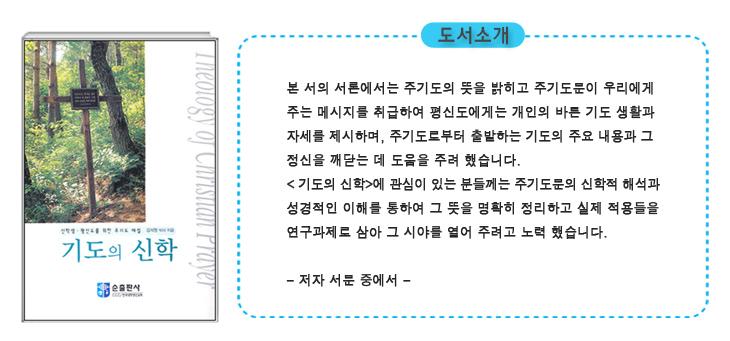 도서소개
Theology of Christian Prayer
신학생·평신도를 위한 주기도 해설
기도의 신학
순출판사
본 서의 서론에서는 주기도의 뜻을 밝히고 주기도문이 우리에게
주는 메시지를 취급하여 평신도에게는 개인의 바른 기도 생활과
자세를 제시하며, 주기도로부터 출발하는 기도의 주요 내용과 그
정신을 깨닫는 데 도움을 주려 했습니다.
< 기도의 신학>에 관심이 있는 분들께는 주기도문의 신학적 해석과
성경적인 이해를 통하여 그 뜻을 명확히 정리하고 실제 적용들을
연구과제로 삼아 그 시야를 열어 주려고 노력 했습니다.
– 저자 서문 중에서 –